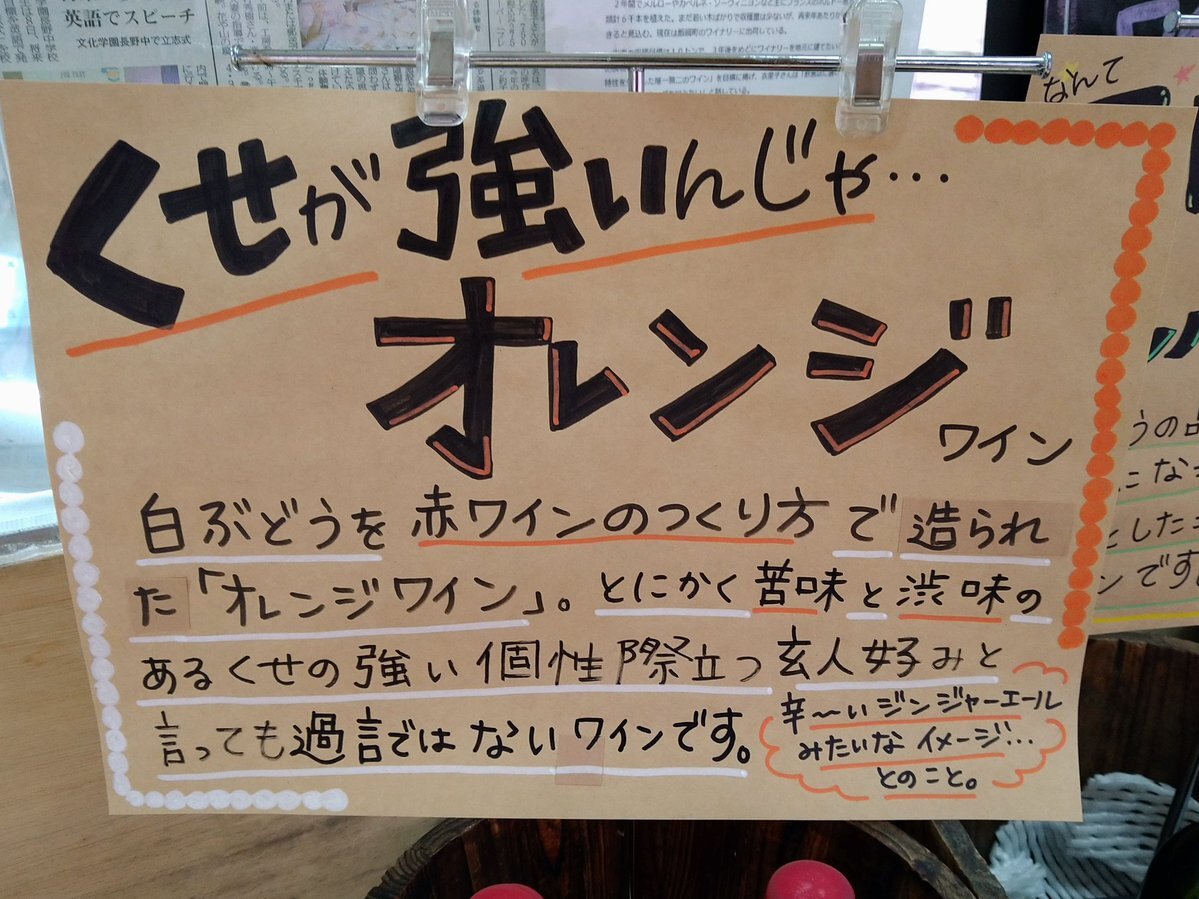 英語でスピーチ
文化学園長野中で立志式
計6千本を植えた。まだ若い木ばかりで収穫量は少ないが、
なんて
くせが強いんじゃ…
オレンジ
ワイン
白ぶどうを赤ワインのつくり方で造られ
た「オレンジワイン」。とにかく苦味と渋味の
あるくせの強い個性際立つ玄人好みと
言っても過言ではないワインです。
辛〜いジンジャーエール
みたいなイメージ…
とのこと。
うの
にな
とした
ンです